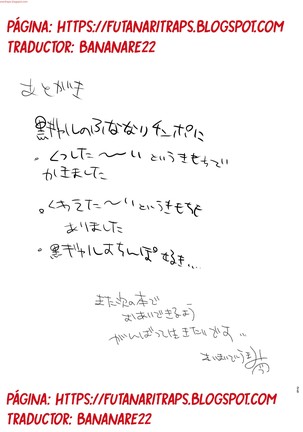 PÁGINA: HTTPS://FUTANARITRAPS.BLOGSPOT.COM
TRADUCTOR: BANANARE22
あとがき
黒ギャルのふたなりチ〇ポに
・くっした〜〜い というきもちで
かきました
・くわえた〜い というきもちも
ありました
・黒ギャルは
また次の本で
おあいできるよう
がんばって
いきたいです
PÁGINA: HTTPS://FUTANARITRAPS.BLOGSPOT.COM
TRADUCTOR: BANANARE22